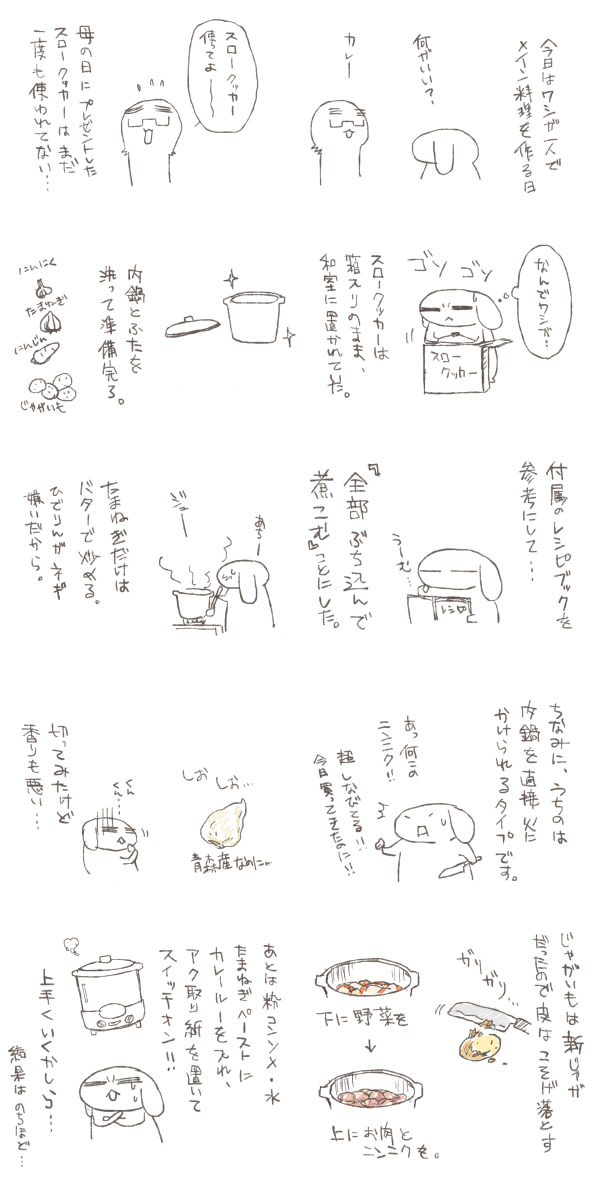 今日はワシが一人で
メイン料理を作る日
何がいい?
カレー
スロークッカー
使ってよ〜〜
母の日にプレゼントした
スロークッカーはまだ
一度も使われてない…
なんでワシが…
ゴソ ゴソ
スロー
クッカー
スロークッカーは
箱入りのまま、
和室に置かれていた。
内鍋とふたを
洗って準備完了。
にんにく
たまねぎ
にんじん
じゃがいも
付属のレシピブックを
参考にして…
うーむ…
レシピ
『全部ぶち込んで
煮こむ』ことにした。
あち〜
ジュー
たまねぎだけは
バターで炒める。
ひでりんがネギ
嫌いだから。
ちなみに、うちのは
内鍋を直接火に
かけられるタイプです。
あっ何この
ニンニク!!
超しなびてる!!
今日買ってきたのに!!
しお しお…
青森産なのに〜
くん
くん…
切ってみたけど
香りも悪い…
じゃがいもは新じゃが
だったので皮はこそげ落とす
ガリガリ…
下に野菜を
↓
上にお肉と
ニンニクを。
あとは粉コンソメ・水
たまねぎペーストに
カレールーを入れ、
アク取り紙を置いて
スイッチオン!!
上手くいくかしら…
結果はのちほど…